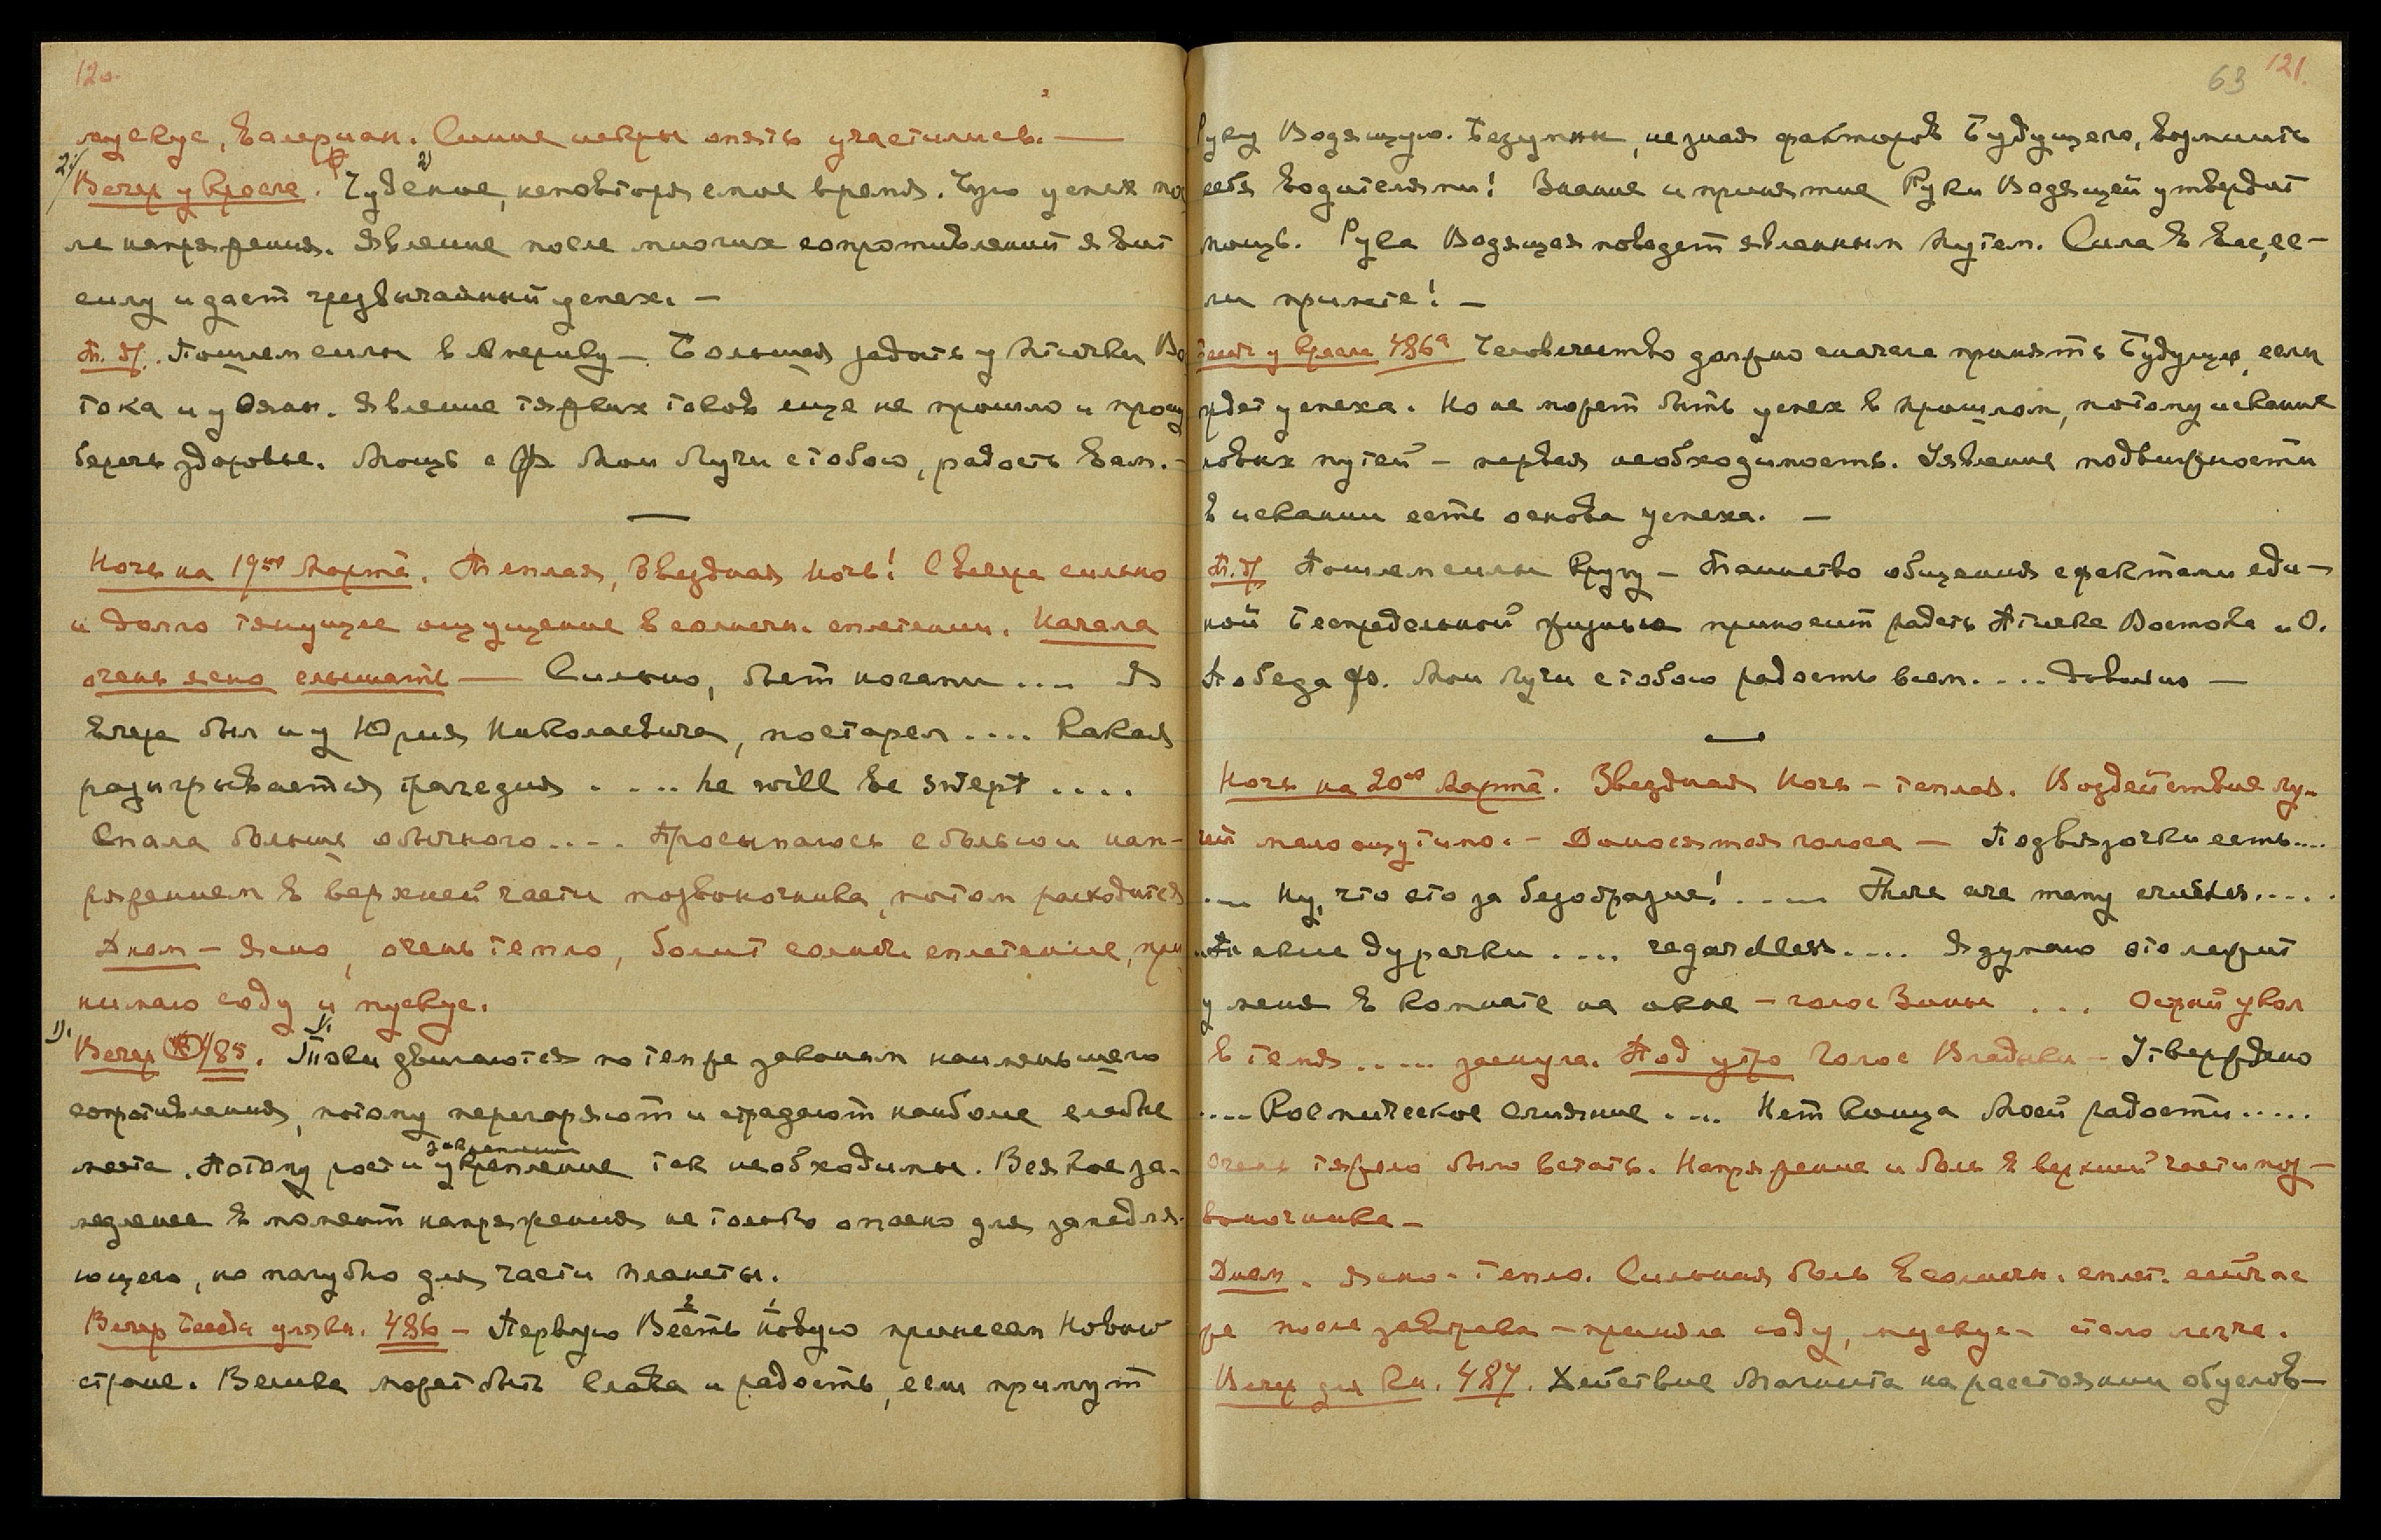 120.
мускус, валериан. Синие искры опять участились. —
2/ Вечер у кресла. Чуде́сное, неповторяемое время. Чую успех пос
ле напряжения. Явление после многих сопротивлений явит
силу и дает чрезвычайный успех. —
Т. Д. Пошлем силы в Америку — Большая радость у Птички Во
тока и у Оян. Явление тяжких токов еще не прошло и прошу
беречь здоровье. Мощь с Мои Лучи с тобою, радость Вам. —
—
Ночь на 19ое Марта. Теплая, Звездная ночь! С вечера сильно
и долго тянущее ощущение в солнечн. сплетении. Начала
очень ясно слышать — Сильно, бьет ногами .... Я
вчера был и у Юрия Николаевича, постарел .... Какая
разыгрывается трагедия .... he will be swept ....
Спала больше обычного .... Просыпалась с болью и нап-
ряжением в верхней части позвоночника, потом расходится
Днем — Ясно, очень тепло, болит солнечн. сплетение, при
нимаю соду и мускус.
1). Вечер 485. Токи двигаются по тем же законам наименьшего
сопротивления, потому перегорают и страдают наиболе слабые
места. Потому рост и укрепление так необходимы. Всякое за-
медление в момент напряжения не только опасно для замедля-
ющего, но пагубно для части планеты.
Вечер Беседы для кн. 486 — Первую Весть новую принесем Новой
стране. Велика может быть Слава и радость, если примут
63 121.
Руку Водящую. Безумны, не зная факторов Будущего, возмнить
себя водителями! Знание и принятие Руки Водящей утвердит
мощь. Рука Водящая поведет явленным путем. Сила в Вас, ес-
ли примете! —
Вечер у кресла 486а Человечество должно сначала принять Будущее, если
ждет успеха. Но не может быть успех в прошлом, потому искание
новых путей — первая необходимость. Уявление подвижности
в искании есть основа успеха. —
Т. Д. Пошлем силы Кругу — Таинство общения с фактами еди-
ной Беспредельной жизнью приносит радость Птичке Востока и О.
Победа Мои Лучи с тобою радость всем. ... Довольно —
—
Ночь на 20ое Марта. Звездная Ночь — теплая. Воздействие лу-
чей мало ощутимо. — Доносятся голоса — Подвязочки есть....
.... Ну, что это за безобразие! .... There are many .....
Такие дурачки .... regardless .... Я думаю это лежит
у меня в комнате на окне — голос Зины ... Острый укол
в темя ..... заснула. Под утро Голос Владыки — Утверждено
.... Космическое слияние .... Нет конца Моей радости .....
Очень тяжело было встать. Напряжение и боль в верхней части поз-
воночника —
Днем. Ясно — тепло. Сильная боль в солнечн. сплет. сейчас
же после завтрака — приняла соду, мускус — стало легче.
Вечер для Кн. 487. Действие Магнита на расстоянии обуслов-